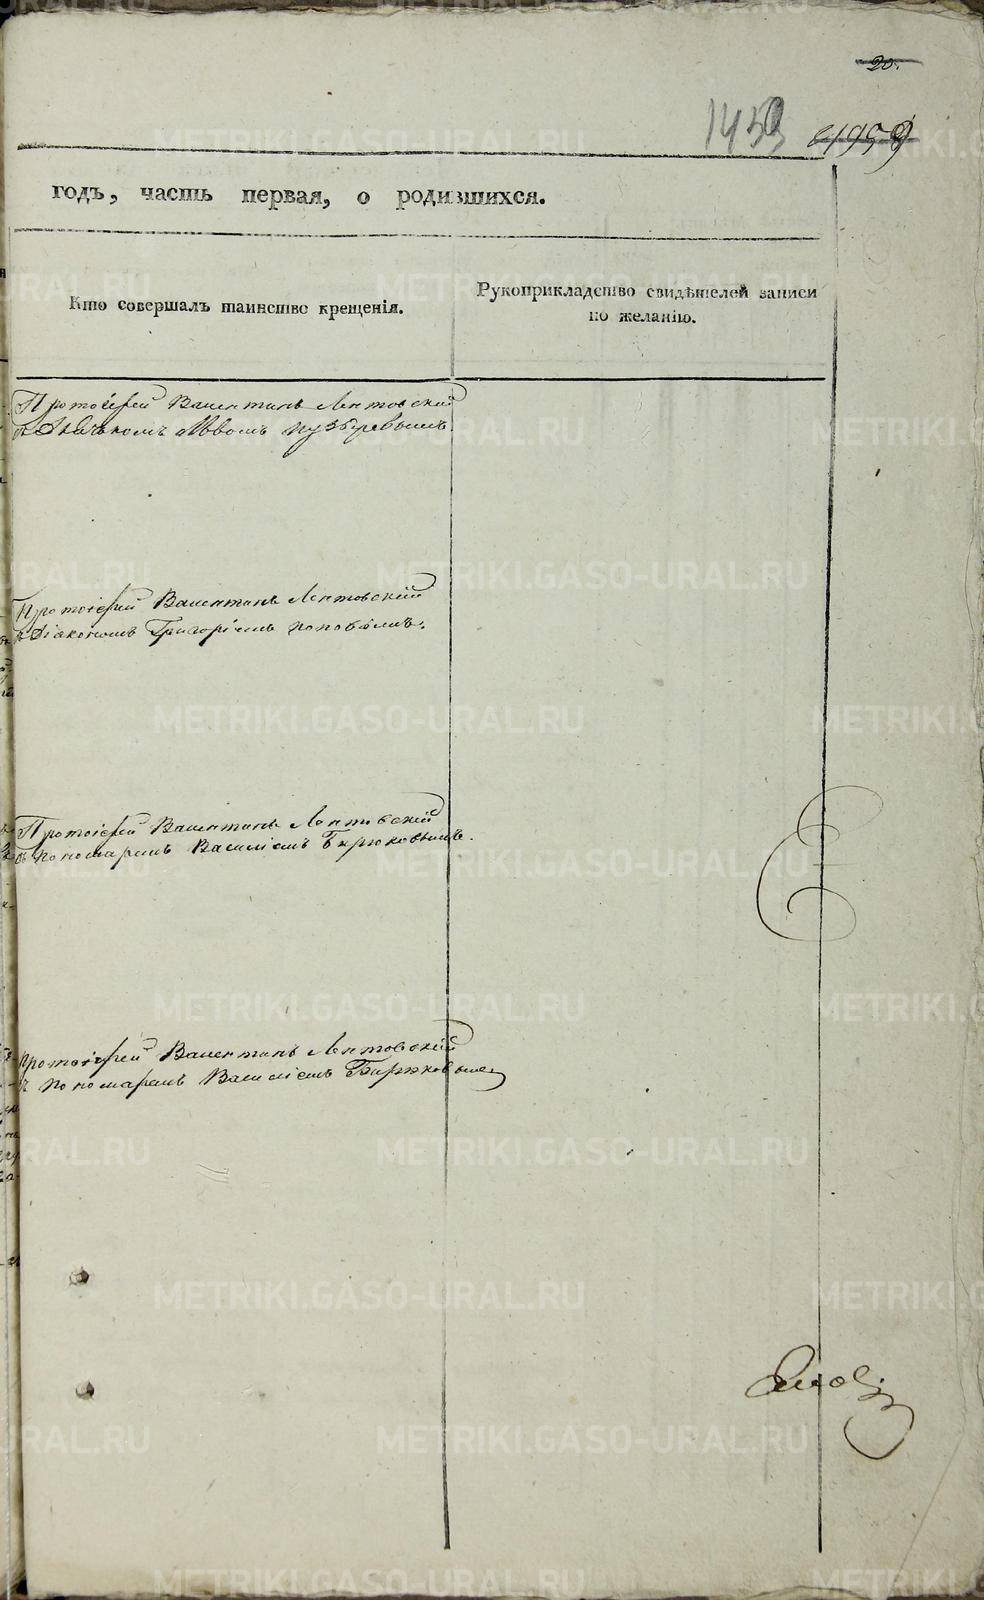 20.
1453
годъ, часть первая, о родившихся.
Кто совершалъ таинство крещенія.
Рукоприкладство свидѣтелей записи
по желанію.
Протоіерей Валентинъ Лентовскій
съ Дьячкомъ Львомъ Пузыревымъ
Протоіерей Валентинъ Лентовскій
съ Діакономъ Григоріемъ Поповымъ.
Протоіерей Валентинъ Лентовскій
съ пономаремъ Василіемъ Бирюковымъ.
Протоіерей Валентинъ Лентовскій
съ пономаремъ Василіемъ Бирюковымъ
METRIKI.GASO-URAL.RU